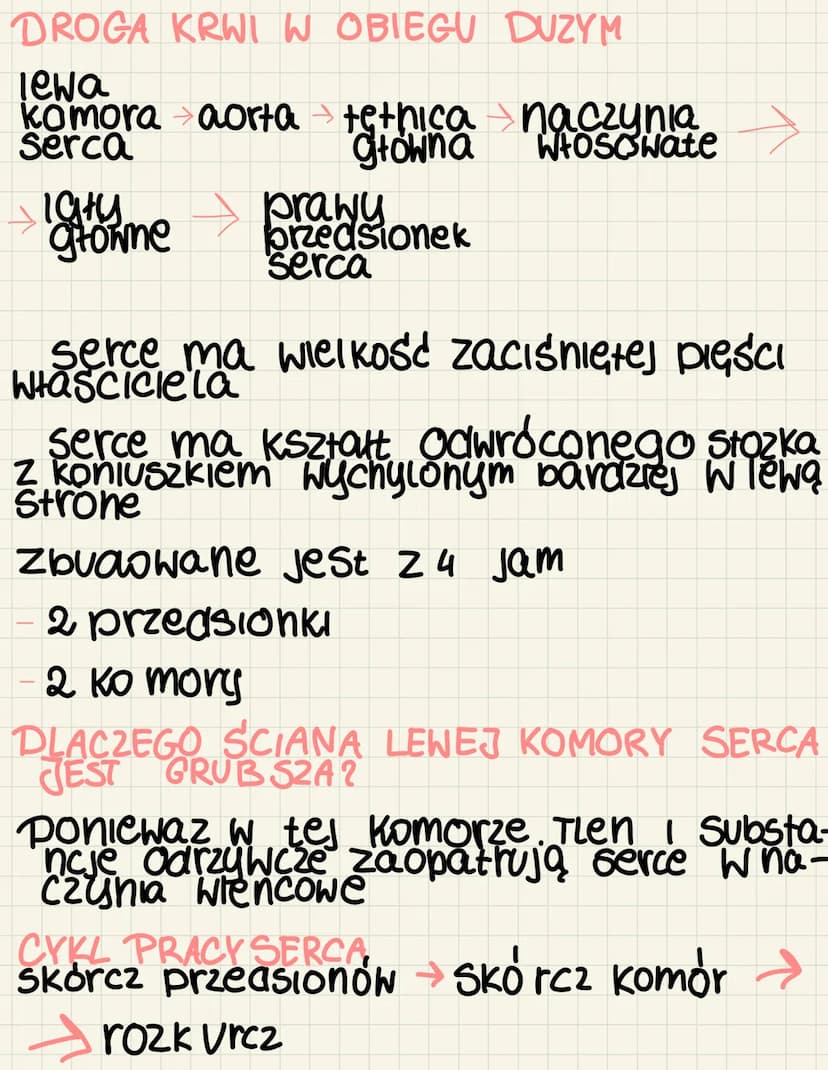 DROGA KRWI W OBIEGU DUZYM
lewa
komora → aorta → tętnica → naczynia →
serca główna włosowate
→ żyły → prawy
główne przedsionek
serca
serce ma wielkość zaciśniętej pięści
właściciela
serce ma kształt odwróconego stozka
z koniuszkiem wychylonym bardziej w lewą
strone
zbudowane jest z 4 jam
- 2 przedsionki
- 2 komory
DLACZEGO ŚCIANA LEWEJ KOMORY SERCA
JEST GRUBSZA?
ponieważ w tej komorze. Tlen i substa-
ncje odrzywcze zaopatrują serce w na-
czynia wieńcowe
CYKL PRACY SERCA
skórcz przedsionów → skórcz komór →
→ rozkurcz